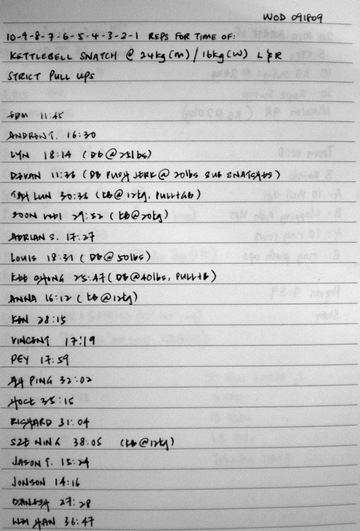 WOD 091809
10-9-8-7-6-5-4-3-2-1 REPS FOR TIME OF:
KETTLEBELL SNATCH @ 24kg(M) / 16kg(W) L & R
STRICT PULL UPS
11:45
ANDREW T. 16:30
LYN 18:14 (DB@25lbs)
DEVAN 11:36 (DB PUSH JERK@ 20lbs SUB SNATCHES)
LUN 30:36 (KB@12kg,
SOON 29:52 (KB@20kg)
ADRIAN S. 17:27
LOUIS 18:31 (DB@50lbs)
KEE 25:47 (DB@40lbs,
ANNA 16:12 (KB@12kg)
KEN 28:15
VINCENT 17:19
PEY 17:59
AH PING 32:02
HOCK 35:15
RICHARD 31:04
SZE NING 38:05 (KB@12kg)
JASON T. 15:24
JONSON 14:16
DANESH 27:28
WEI HAN 36:47